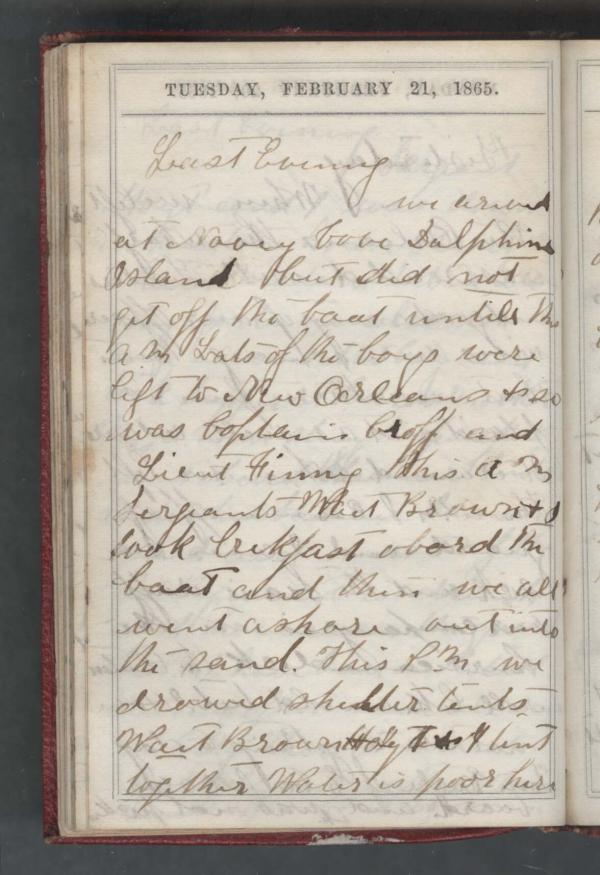 TUESDAY, FEBRUARY 21, 1865.
Last Evening
we arived
at Navey Cove Dalphine
Island but did not
get off the boat untill the
A M Lots of the boys were
left to New Orleans & so
was Captain Croff and
Lieut Finney This A M
Sergeants Wait Brown & I
took brekfast abord the
boat and then we all
went ashore out into
the sand. This P.M. we
drowed shelter tents
Wait Brown & I tent
together Water is poor here